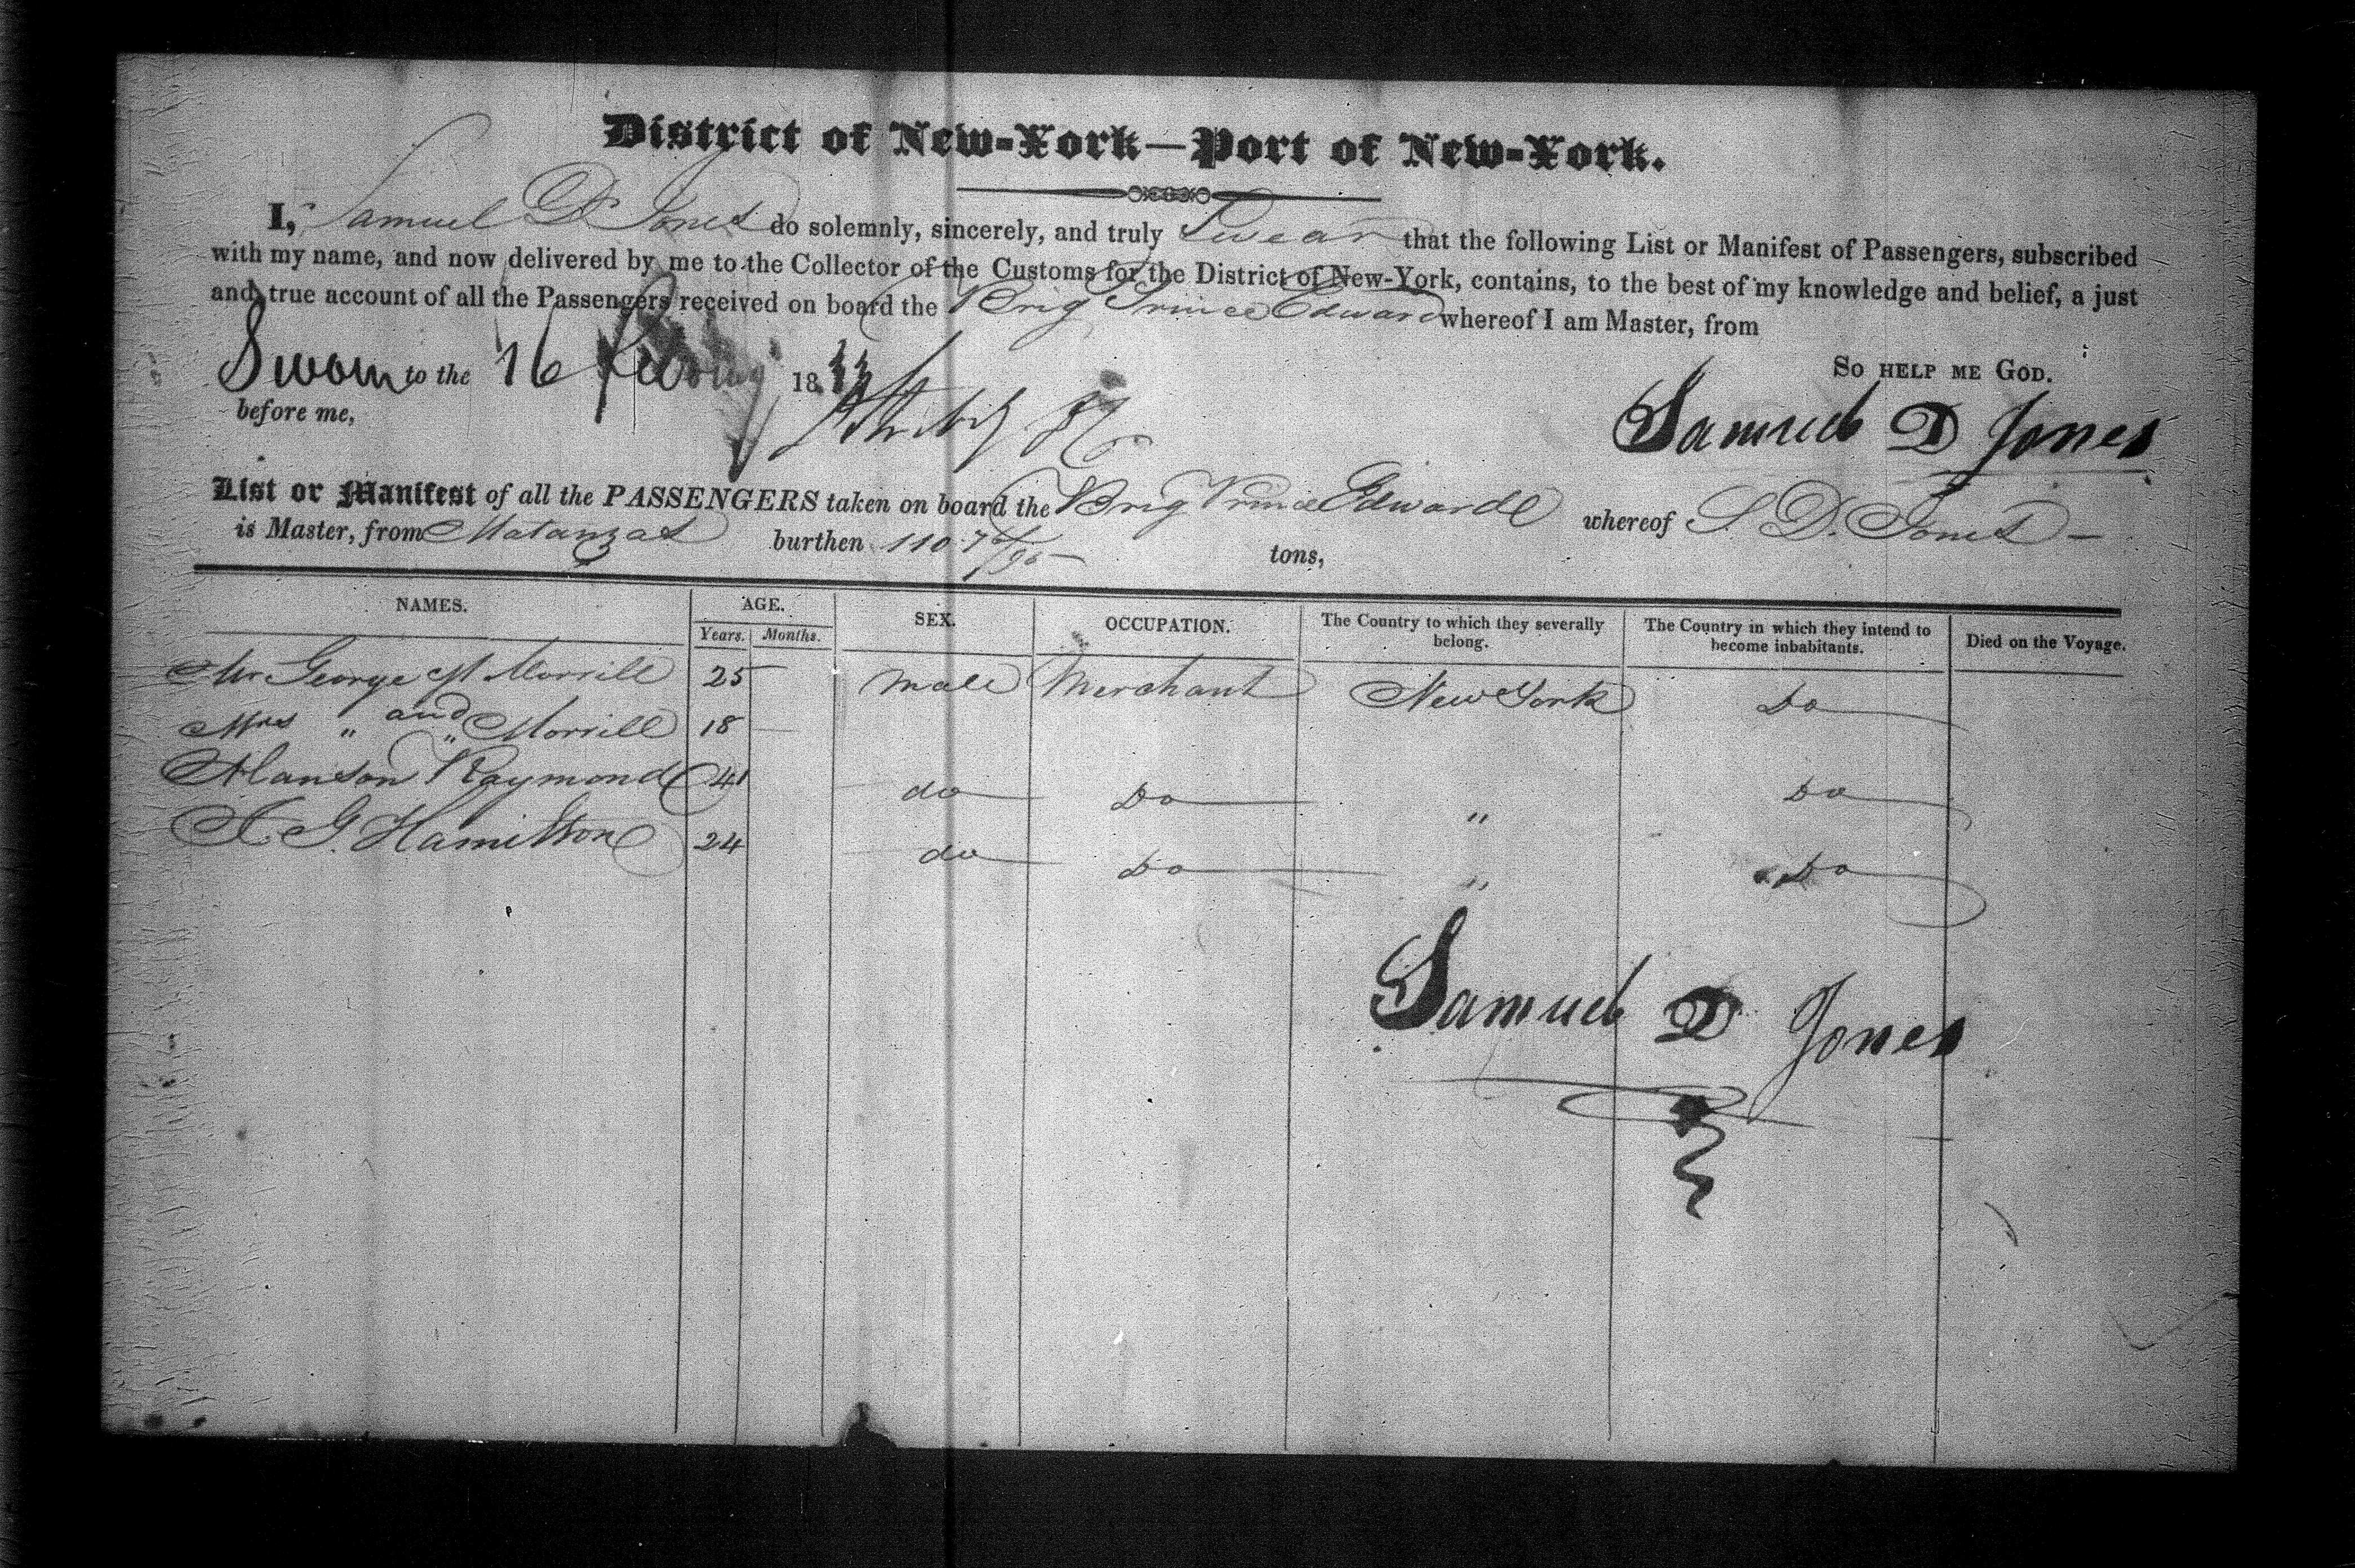 District of New-York—Port of New-York.
I, Samuel D Jones do solemnly, sincerely, and truly Swear that the following List or Manifest of Passengers, subscribed
with my name, and now delivered by me to the Collector of the Customs for the District of New-York, contains, to the best of my knowledge and belief, a just
and true account of all the Passengers received on board the Brig Prince Edward whereof I am Master, from
So help me God.
Sworn to the 16 1833
before me,
Samuel D Jones
List or Manifest of all the PASSENGERS taken on board the Brig Prince Edward whereof S. D. Jones
is Master, from Matanzas burthen 110 76/95 tons,
NAMES. AGE. SEX. OCCUPATION. The Country to which they severally belong. The Country in which they intend to become inbabitants. Died on the Voyage.
Years. Months.
Mr George M Morrill 25 male Merchant New York Do
Mrs " and " Morrill 18
Alanson Raymond 41 do Do " Do
A. G. Hamilton 24 do Do " Do
Samuel D Jones